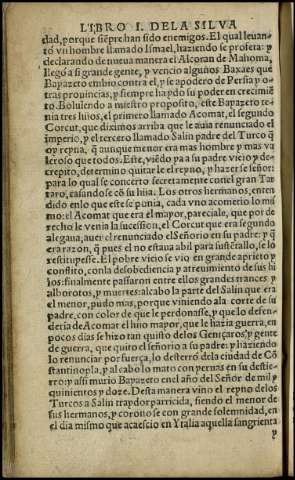 LIBRO I. DE LA SILVA
dad, porque siẽpre han sido enemigos. El qual leuan-
tó vn hombre llamado Ismael, haziendo se profeta: y
declarando de nueua manera el Alcoran de Mahoma,
llegó a si grande gente, y vencio algunos Baxaes que
Bapazeto embio contra el, y se apodero de Persia y o-
tras prouincias, y siempre ha ydo su poder en crecimiẽ
to. Boluiendo a nuestro proposito, este Bapazeto te-
nia tres hijos, el primero llamado Acomat, el segundo
Corcut, que diximos arriba que le auia renunciado el
imperio, y el tercero llamado Salin padre del Turco q̃
oy reyna, q̃ aunque menor era mas hombre y mas va
leroso que todos. Este, viẽdo ya a su padre viejo y de-
crepito, determino quitar le el reyno, y hazer se señor:
para lo qual se concerto secretamente con el gran Tar
taro, casandose cõ su hija. Los otros hermanos, enten
dido en lo que este se ponia, cada vno acometio lo mis
mo: el Acomat que era el mayor, pareciale, que por de
recho le venia la sucession, el Corcut que era segundo
alegaua, auer el renunciado el Señorio en su padre: y q̃
era razon, q̃ pues el no estaua abil para sustẽtarlo, se lo
restituyesse. El pobre viejo se vio en grande aprieto y
conflito, con la desobediencia y atreuimiento de sus hi
jos: finalmente passaron entre ellos grandes trances y
alborotos, y muertes: al cabo la parte del Salin que era
el menor, pudo mas, porque viniendo a la corte de su
padre, con color de que le perdonasse, y que lo defen-
deria de Acomat el hijo mayor, que le hazia guerra, en
pocos dias se hizo tan quisto delos Geniçaros, y gente
de guerra, que quito el señorio a su padre: y haziendo
lo renunciar por fuerça, lo desterro dela ciudad de Cõ
stantinopla, y al cabo lo mato con yeruas en su destie-
rro: y assi murio Bapazeto en el año del Señor de mil y
quinientos y doze. Desta manera vino el reyno de los
Turcos a Salin traydor parricida, siendo el menor de
sus hermanos, y corono se con grande solemnidad, en
el dia mismo que acaescio en Ytalia aquella sangrienta
y